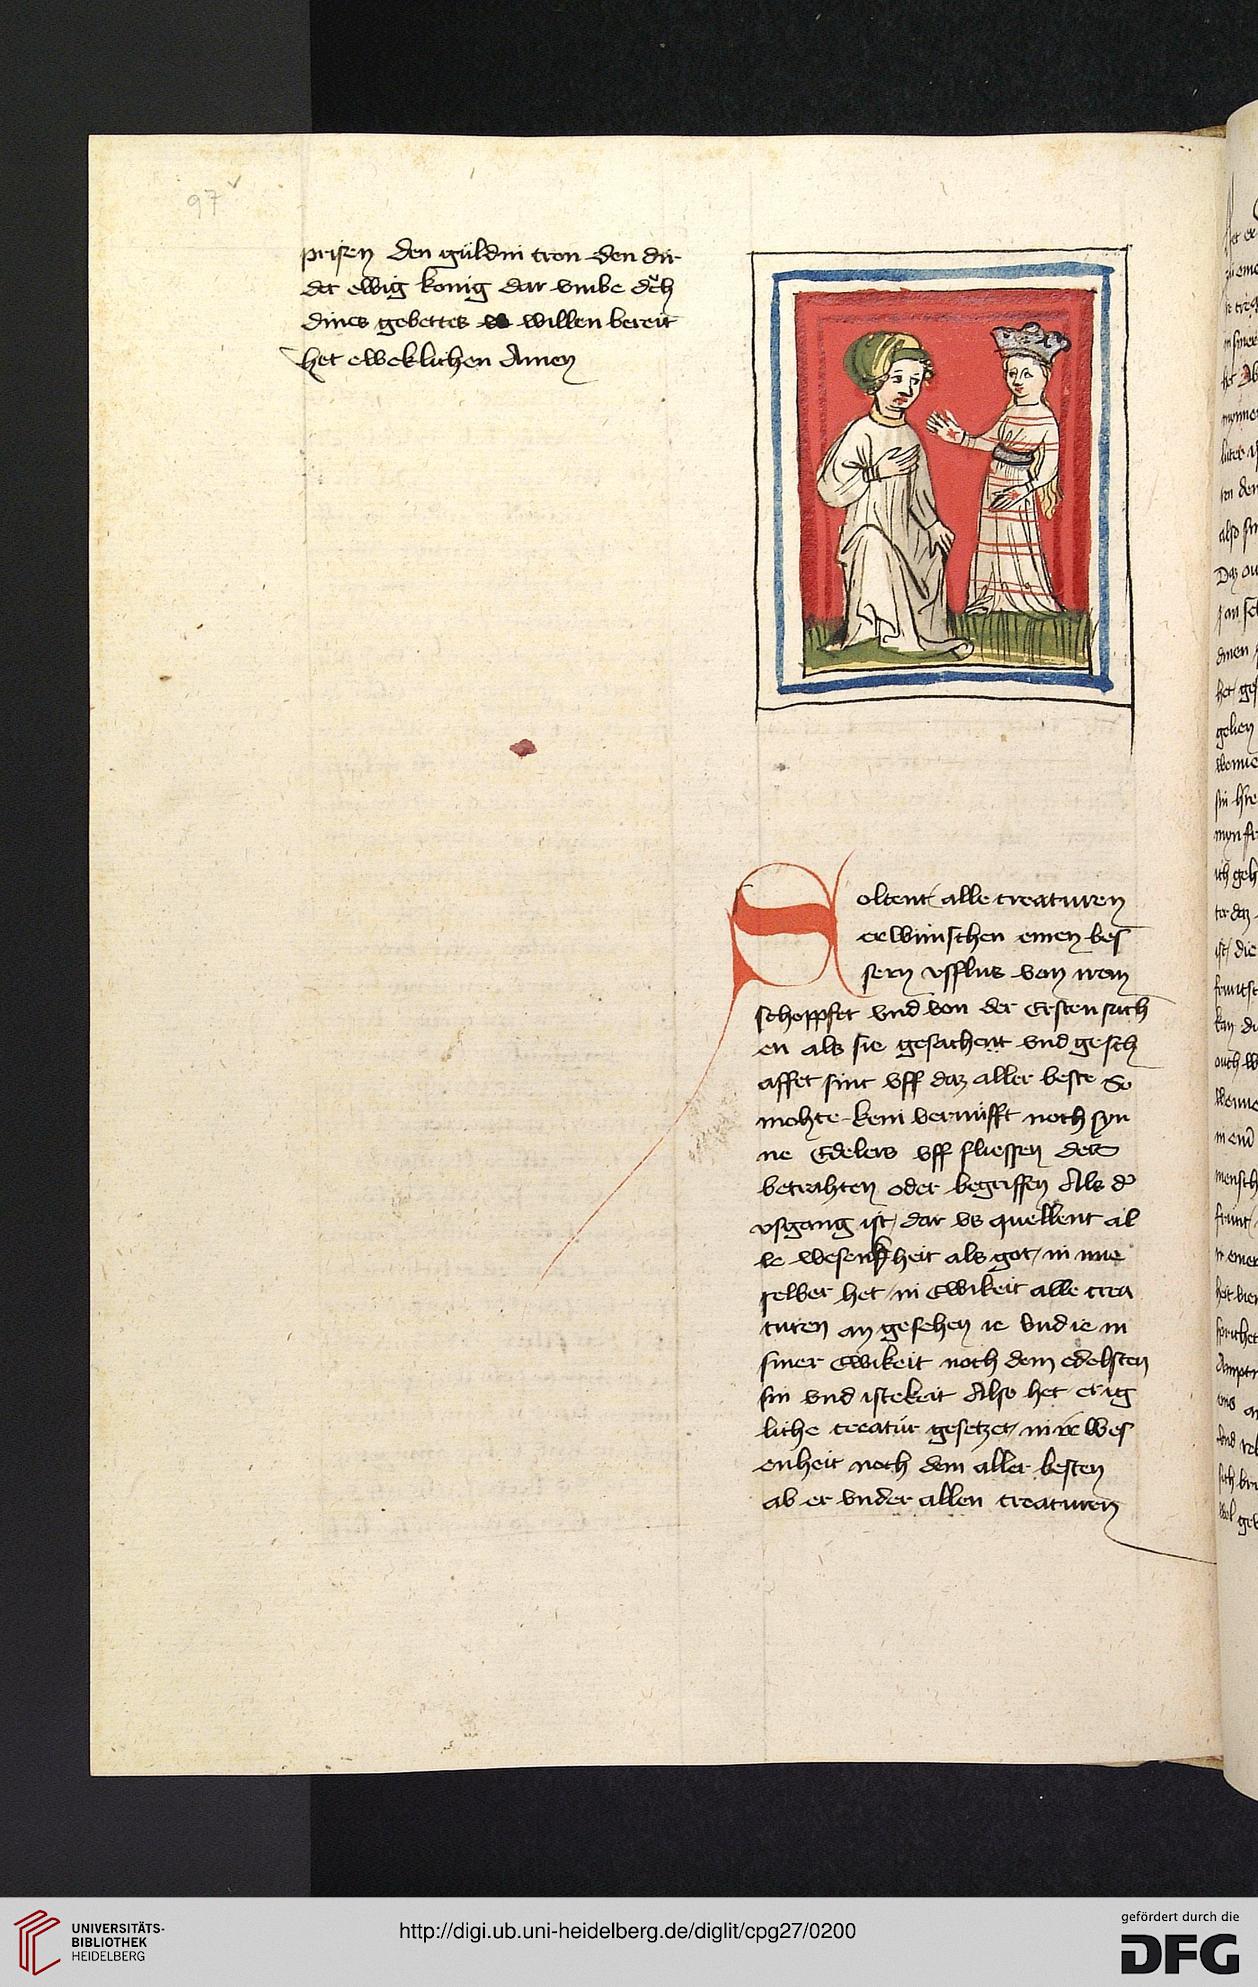 97v
prisen den güldin tron den dir
der ewig konig dar vmbe dch
dines gebettes willen bereit
het eweklichen Amen
Soltent alle creaturen
erwünschen einen bes
sern vsflus von irem
schoppfer vnd von der Ersten sach
en als sie gesachent vnd gesch
affet sint vff daz aller beste So
mohte kein vernüfft noch syn
ne Edelers vff fliessen
betrahten oder begriffen Als d'
vsgang ist dar vs quellent al
le heit als got in ime
selber het in Ewikeit alle crea
turen an gesehen ie vnd ie in
siner Ewikeit noch dem edelsten
sin vnd istekeit Also het er ig
liche creatür gesetzet in ir wes
enheit noch dem aller besten
ab er vnder allen creaturen
UNIVERSITÄTS-
BIBLIOTHEK
HEIDELBERG
http://digi.ub.uni-heidelberg.de/diglit/cpg27/0200
gefördert durch die
DFG